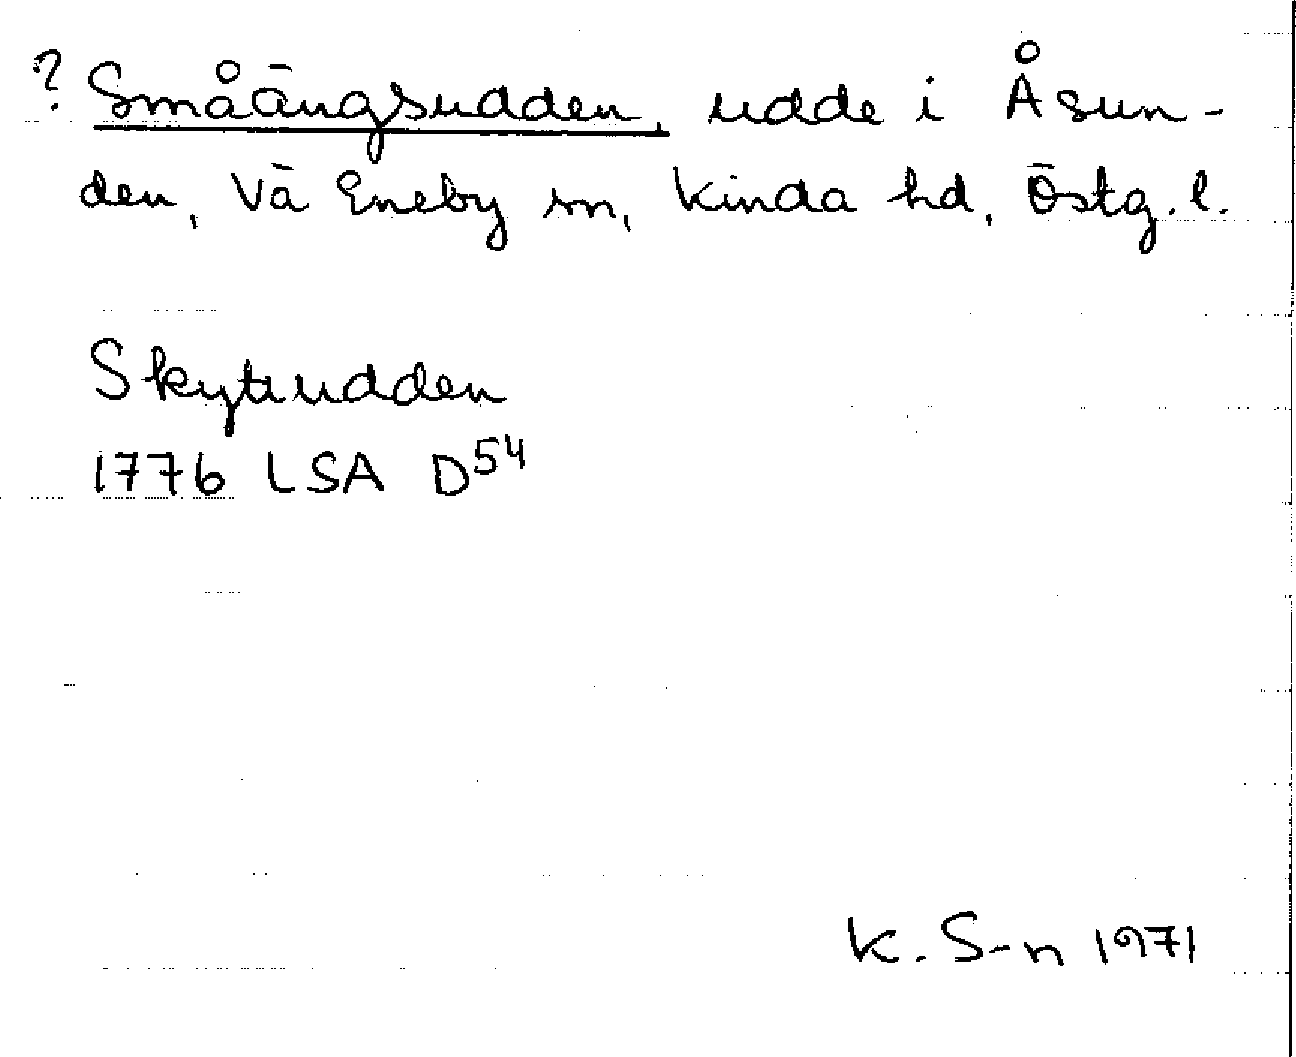 ? Småängsudden, udde i Åsun-
den, Vä Eneby sn, Kinda hd, Östg. l.
Skytudden
1776 LSA D54
K. S-n 1971